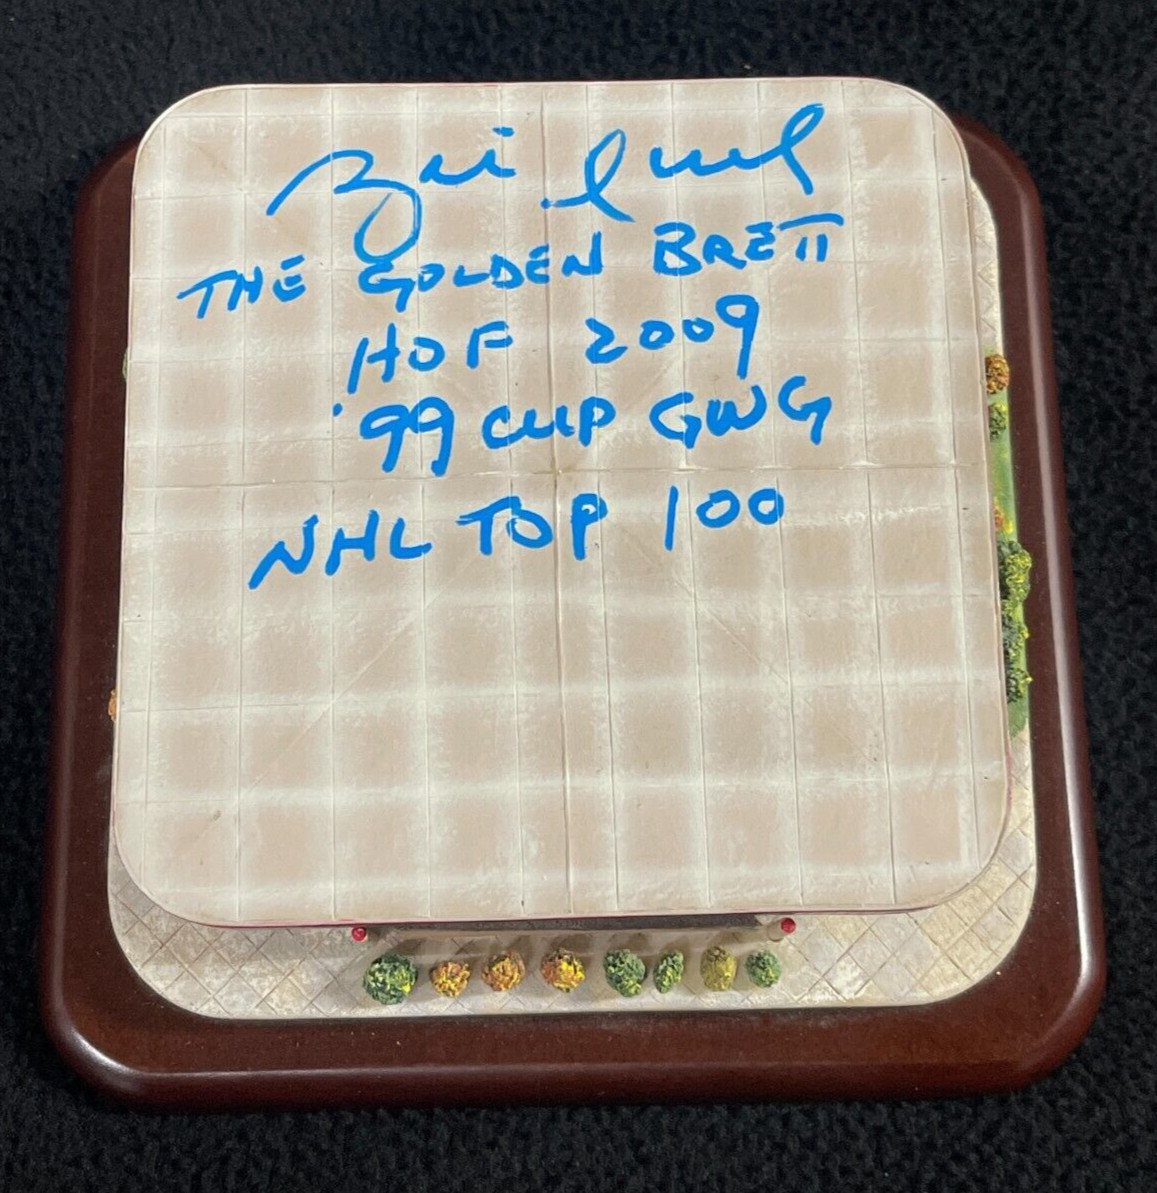 Brett Hull
THE GOLDEN BRETT
HOF 2009
'99 CUP GWG
NHL TOP 100